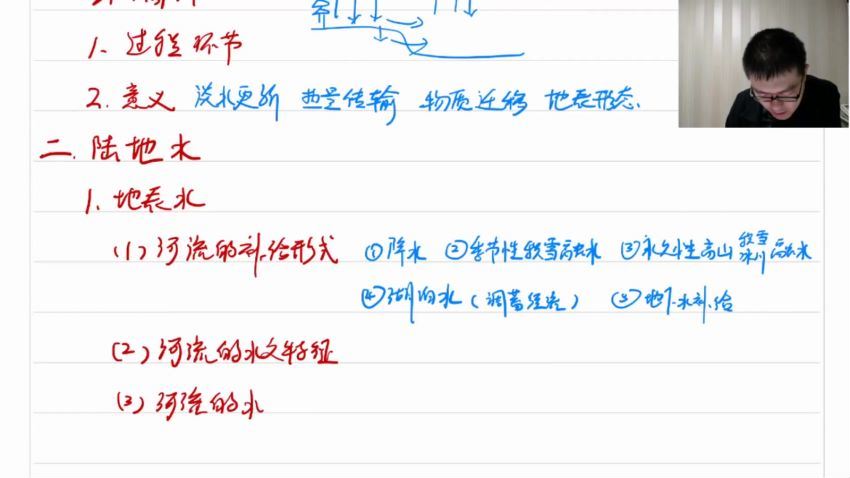 1. 过程环节
2. 意义 淡水更新 热量传输 物质迁移 地表形态.
二. 陆地水
1. 地表水
(1) 河流的补给形式 ①降水 ②季节性积雪融水 ③永久性高山积雪冰川融水
④湖泊水(调蓄径流) ⑤地下水补给
(2) 河流的水文特征
(3) 河流的水